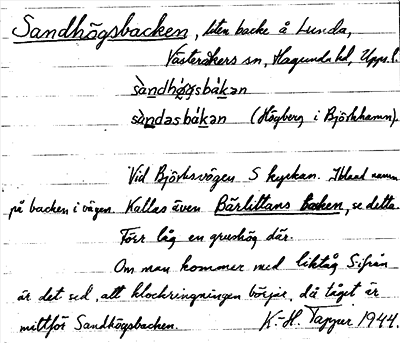 Sandhögsbacken, liten backe å Lunda,
Västeråkers sn, Hagunda hd, Upps. l.
sàndhø̀gsbákan
sàndasbákan (Högberg i Björkhamn).
Vid Björksvägen S kyrkan. Ibland namn
på backen i vägen. Kallas även Bärlittans backen, se detta.
Förr låg en grushög där.
Om man kommer med liktåg S.ifrån
är det sed, att klockringningen börjar, då tåget är
mittför Sandhögsbacken. K.-H. Tapper 1944.